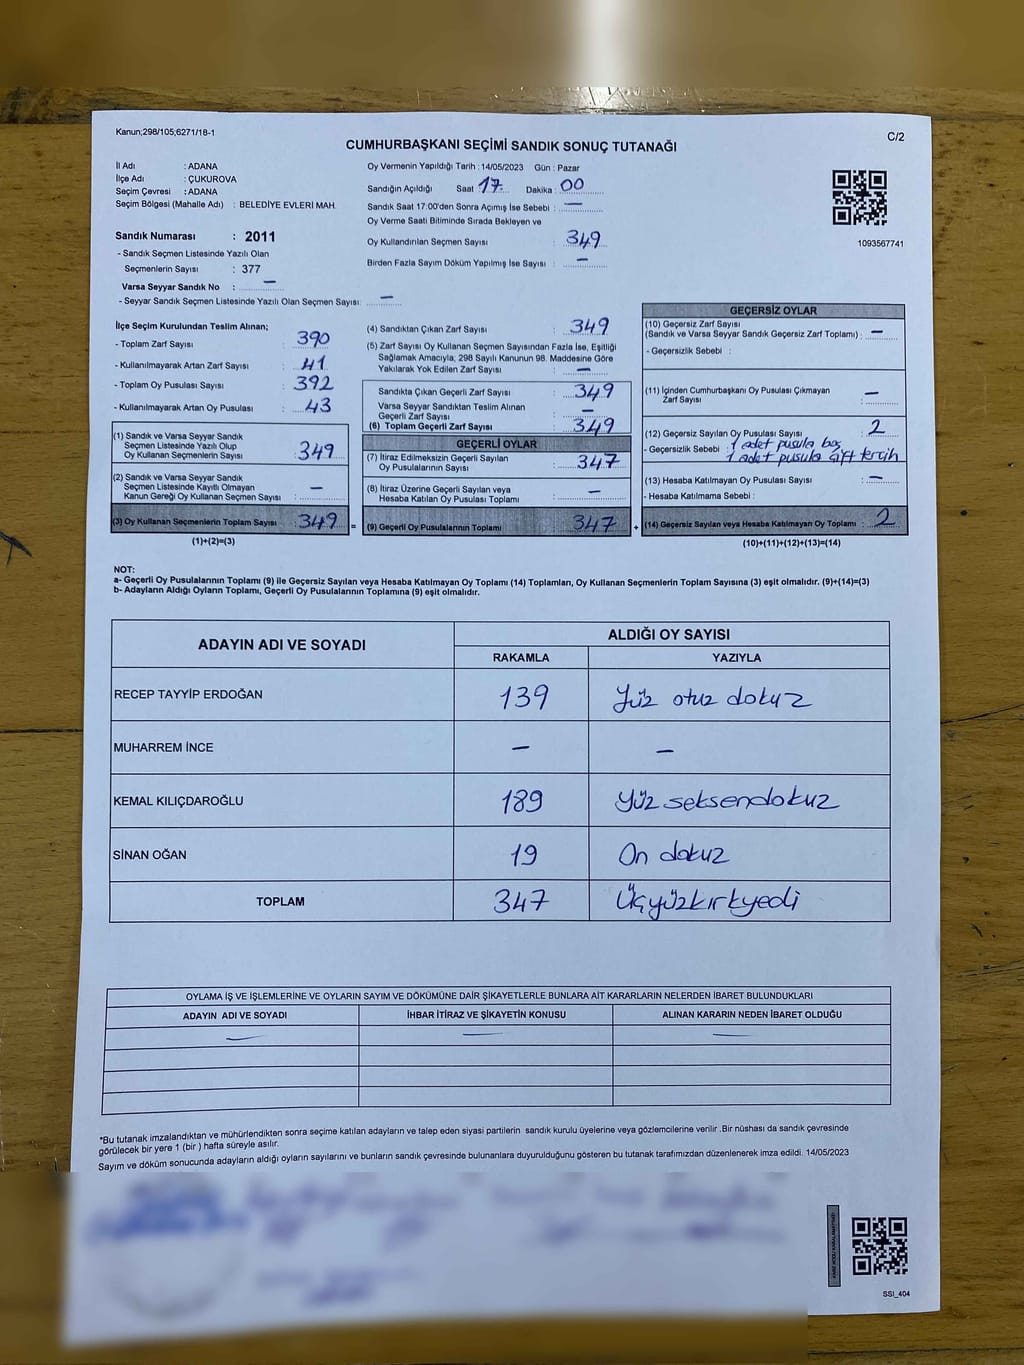 Kanun;298/105;6271/18-1
C/2
CUMHURBAŞKANI SEÇİMİ SANDIK SONUÇ TUTANAĞI
İl Adı : ADANA
İlçe Adı : ÇUKUROVA
Seçim Çevresi : ADANA
Seçim Bölgesi (Mahalle Adı) : BELEDİYE EVLERİ MAH.
Sandık Numarası : 2011
- Sandık Seçmen Listesinde Yazılı Olan
Seçmenlerin Sayısı : 377
Varsa Seyyar Sandık No : —
- Seyyar Sandık Seçmen Listesinde Yazılı Olan Seçmen Sayısı: —
Oy Vermenin Yapıldığı Tarih : 14/05/2023 Gün : Pazar
Sandığın Açıldığı Saat 17 Dakika : 00
Sandık Saat 17:00'den Sonra Açımış İse Sebebi : —
Oy Verme Saati Bitiminde Sırada Bekleyen ve
Oy Kullandırılan Seçmen Sayısı : 349
Birden Fazla Sayım Döküm Yapılmış İse Sayısı : —
1093567741
İlçe Seçim Kurulundan Teslim Alınan;
- Toplam Zarf Sayısı : 390
- Kullanılmayarak Artan Zarf Sayısı : 41
- Toplam Oy Pusulası Sayısı : 392
- Kullanılmayarak Artan Oy Pusulası : 43
(1) Sandık ve Varsa Seyyar Sandık
Seçmen Listesinde Yazılı Olup
Oy Kullanan Seçmenlerin Sayısı : 349
(2) Sandık ve Varsa Seyyar Sandık
Seçmen Listesinde Kayıtlı Olmayan
Kanun Gereği Oy Kullanan Seçmen Sayısı : —
(3) Oy Kullanan Seçmenlerin Toplam Sayısı : 349 =
(1)+(2)=(3)
(4) Sandıktan Çıkan Zarf Sayısı : 349
(5) Zarf Sayısı Oy Kullanan Seçmen Sayısından Fazla İse, Eşitliği
Sağlamak Amacıyla; 298 Sayılı Kanunun 98. Maddesine Göre
Yakılarak Yok Edilen Zarf Sayısı : —
Sandıkta Çıkan Geçerli Zarf Sayısı : 349
Varsa Seyyar Sandıktan Teslim Alınan
Geçerli Zarf Sayısı : —
(6) Toplam Geçerli Zarf Sayısı : 349
GEÇERLİ OYLAR
(7) İtiraz Edilmeksizin Geçerli Sayılan
Oy Pusulalarının Sayısı : 347
(8) İtiraz Üzerine Geçerli Sayılan veya
Hesaba Katılan Oy Pusulası Toplamı : —
(9) Geçerli Oy Pusulalarının Toplamı : 347 +
GEÇERSİZ OYLAR
(10) Geçersiz Zarf Sayısı
(Sandık ve Varsa Seyyar Sandık Geçersiz Zarf Toplamı) : —
- Geçersizlik Sebebi :
(11) İçinden Cumhurbaşkanı Oy Pusulası Çıkmayan
Zarf Sayısı : —
(12) Geçersiz Sayılan Oy Pusulası Sayısı : 2
- Geçersizlik Sebebi : 1 adet pusula boş
1 adet pusula çift tercih
(13) Hesaba Katılmayan Oy Pusulası Sayısı : —
- Hesaba Katılmama Sebebi :
(14) Geçersiz Sayılan veya Hesaba Katılmayan Oy Toplamı : 2
(10)+(11)+(12)+(13)=(14)
NOT:
a- Geçerli Oy Pusulalarının Toplamı (9) ile Geçersiz Sayılan veya Hesaba Katılmayan Oy Toplamı (14) Toplamları, Oy Kullanan Seçmenlerin Toplam Sayısına (3) eşit olmalıdır. (9)+(14)=(3)
b- Adayların Aldığı Oyların Toplamı, Geçerli Oy Pusulalarının Toplamına (9) eşit olmalıdır.
ADAYIN ADI VE SOYADI
ALDIĞI OY SAYISI
RAKAMLA YAZIYLA
RECEP TAYYİP ERDOĞAN 139 Yüz otuz dokuz
MUHARREM İNCE — —
KEMAL KILIÇDAROĞLU 189 Yüz seksendokuz
SİNAN OĞAN 19 On dokuz
TOPLAM 347 Üçyüzkırkyedi
OYLAMA İŞ VE İŞLEMLERİNE VE OYLARIN SAYIM VE DÖKÜMÜNE DAİR ŞİKAYETLERLE BUNLARA AİT KARARLARIN NELERDEN İBARET BULUNDUKLARI
ADAYIN ADI VE SOYADI İHBAR İTİRAZ VE ŞİKAYETİN KONUSU ALINAN KARARIN NEDEN İBARET OLDUĞU
— — —
*Bu tutanak imzalandıktan ve mühürlendikten sonra seçime katılan adayların ve talep eden siyasi partilerin sandık kurulu üyelerine veya gözlemcilerine verilir .Bir nüshası da sandık çevresinde
görülecek bir yere 1 (bir ) hafta süreyle asılır.
Sayım ve döküm sonucunda adayların aldığı oyların sayılarını ve bunların sandık çevresinde bulunanlara duyurulduğunu gösteren bu tutanak tarafımızdan düzenlenerek imza edildi. 14/05/2023
SSI_404